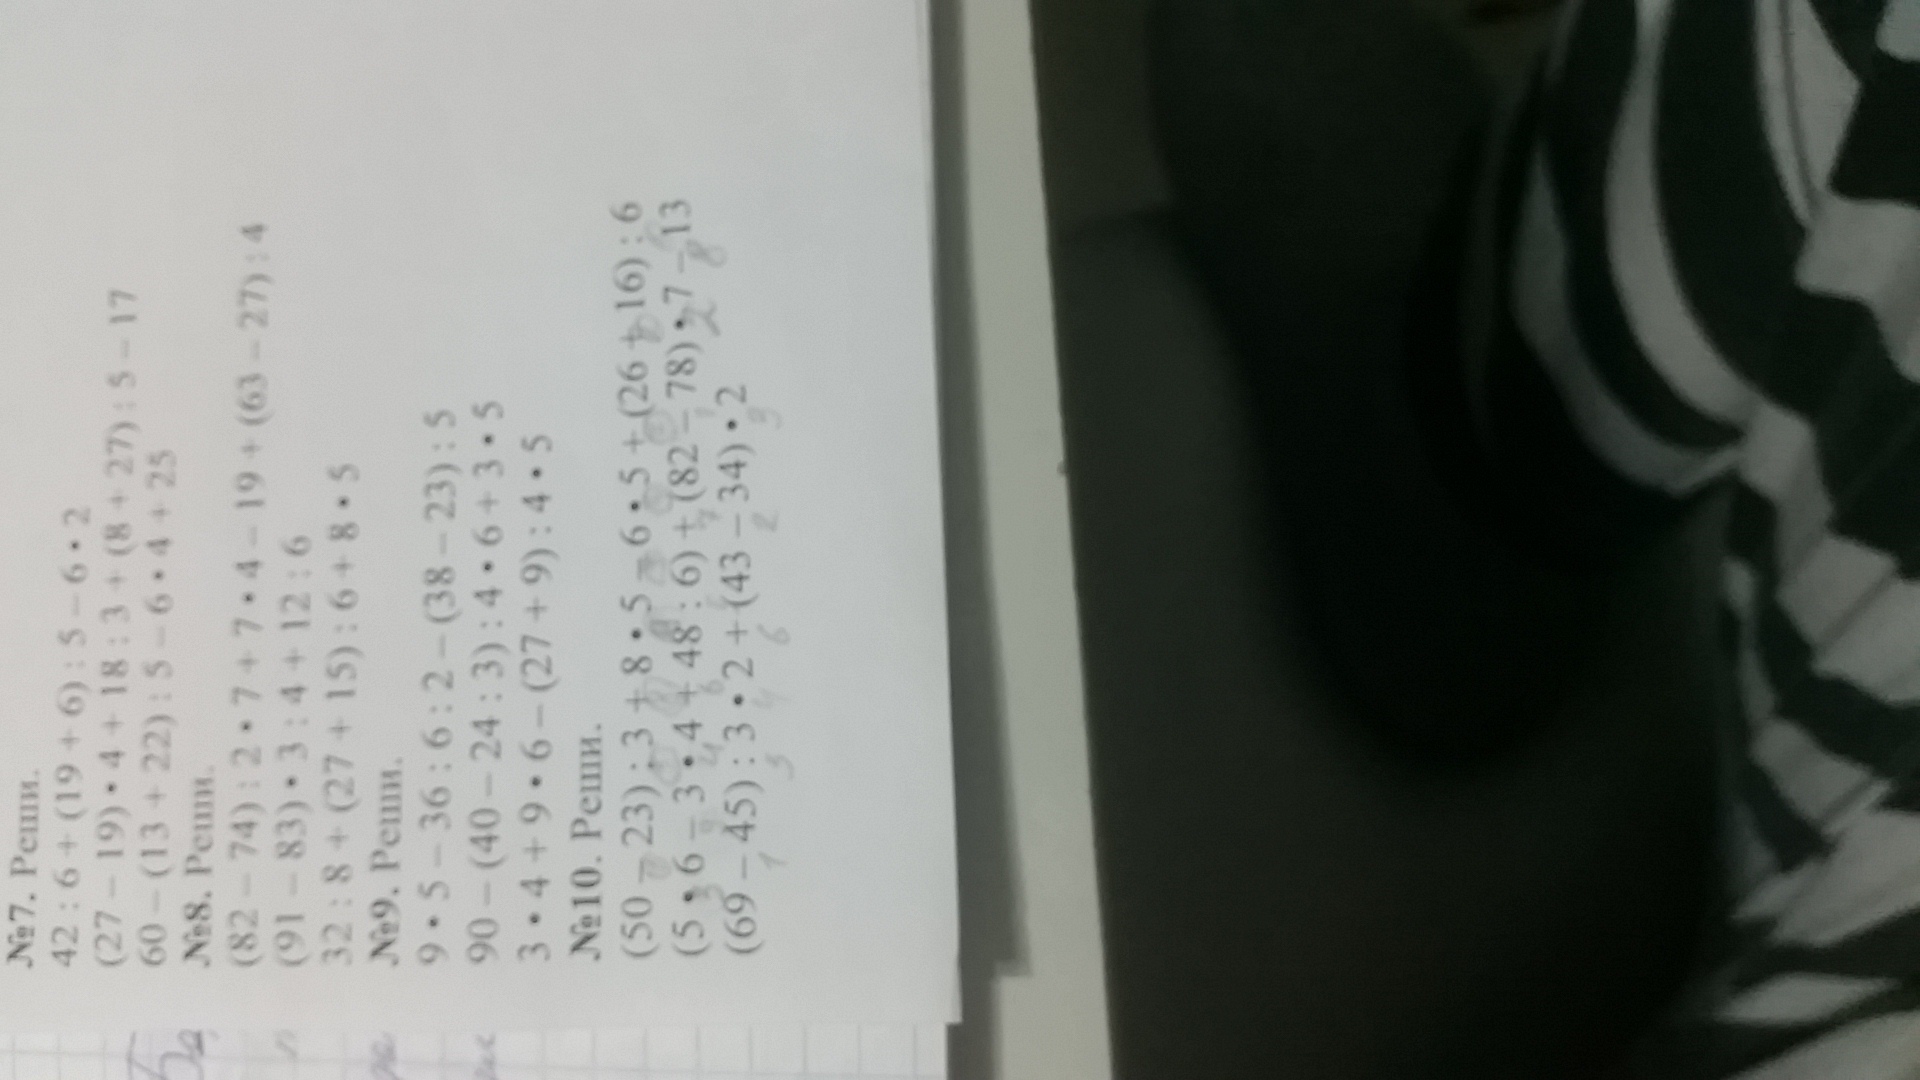 №7. Реши.
42 : 6 + (19 + 6) : 5 – 6 • 2
(27 – 19) • 4 + 18 : 3 + (8 + 27) : 5 – 17
60 – (13 + 22) : 5 – 6 • 4 + 25
№8. Реши.
(82 – 74) : 2 • 7 + 7 • 4 – 19 + (63 – 27) : 4
(91 – 83) • 3 : 4 + 12 : 6
32 : 8 + (27 + 15) : 6 + 8 • 5
№9. Реши.
9 • 5 – 36 : 6 : 2 – (38 – 23) : 5
90 – (40 – 24 : 3) : 4 • 6 + 3 • 5
3 • 4 + 9 • 6 – (27 + 9) : 4 • 5
№10. Реши.
(50 – 23) : 3 + 8 • 5 – 6 • 5 + (26 + 16) : 6
(5 • 6 – 3 • 4 + 48 : 6) + (82 – 78) • 7 – 13
(69 – 45) : 3 • 2 + (43 – 34) • 2